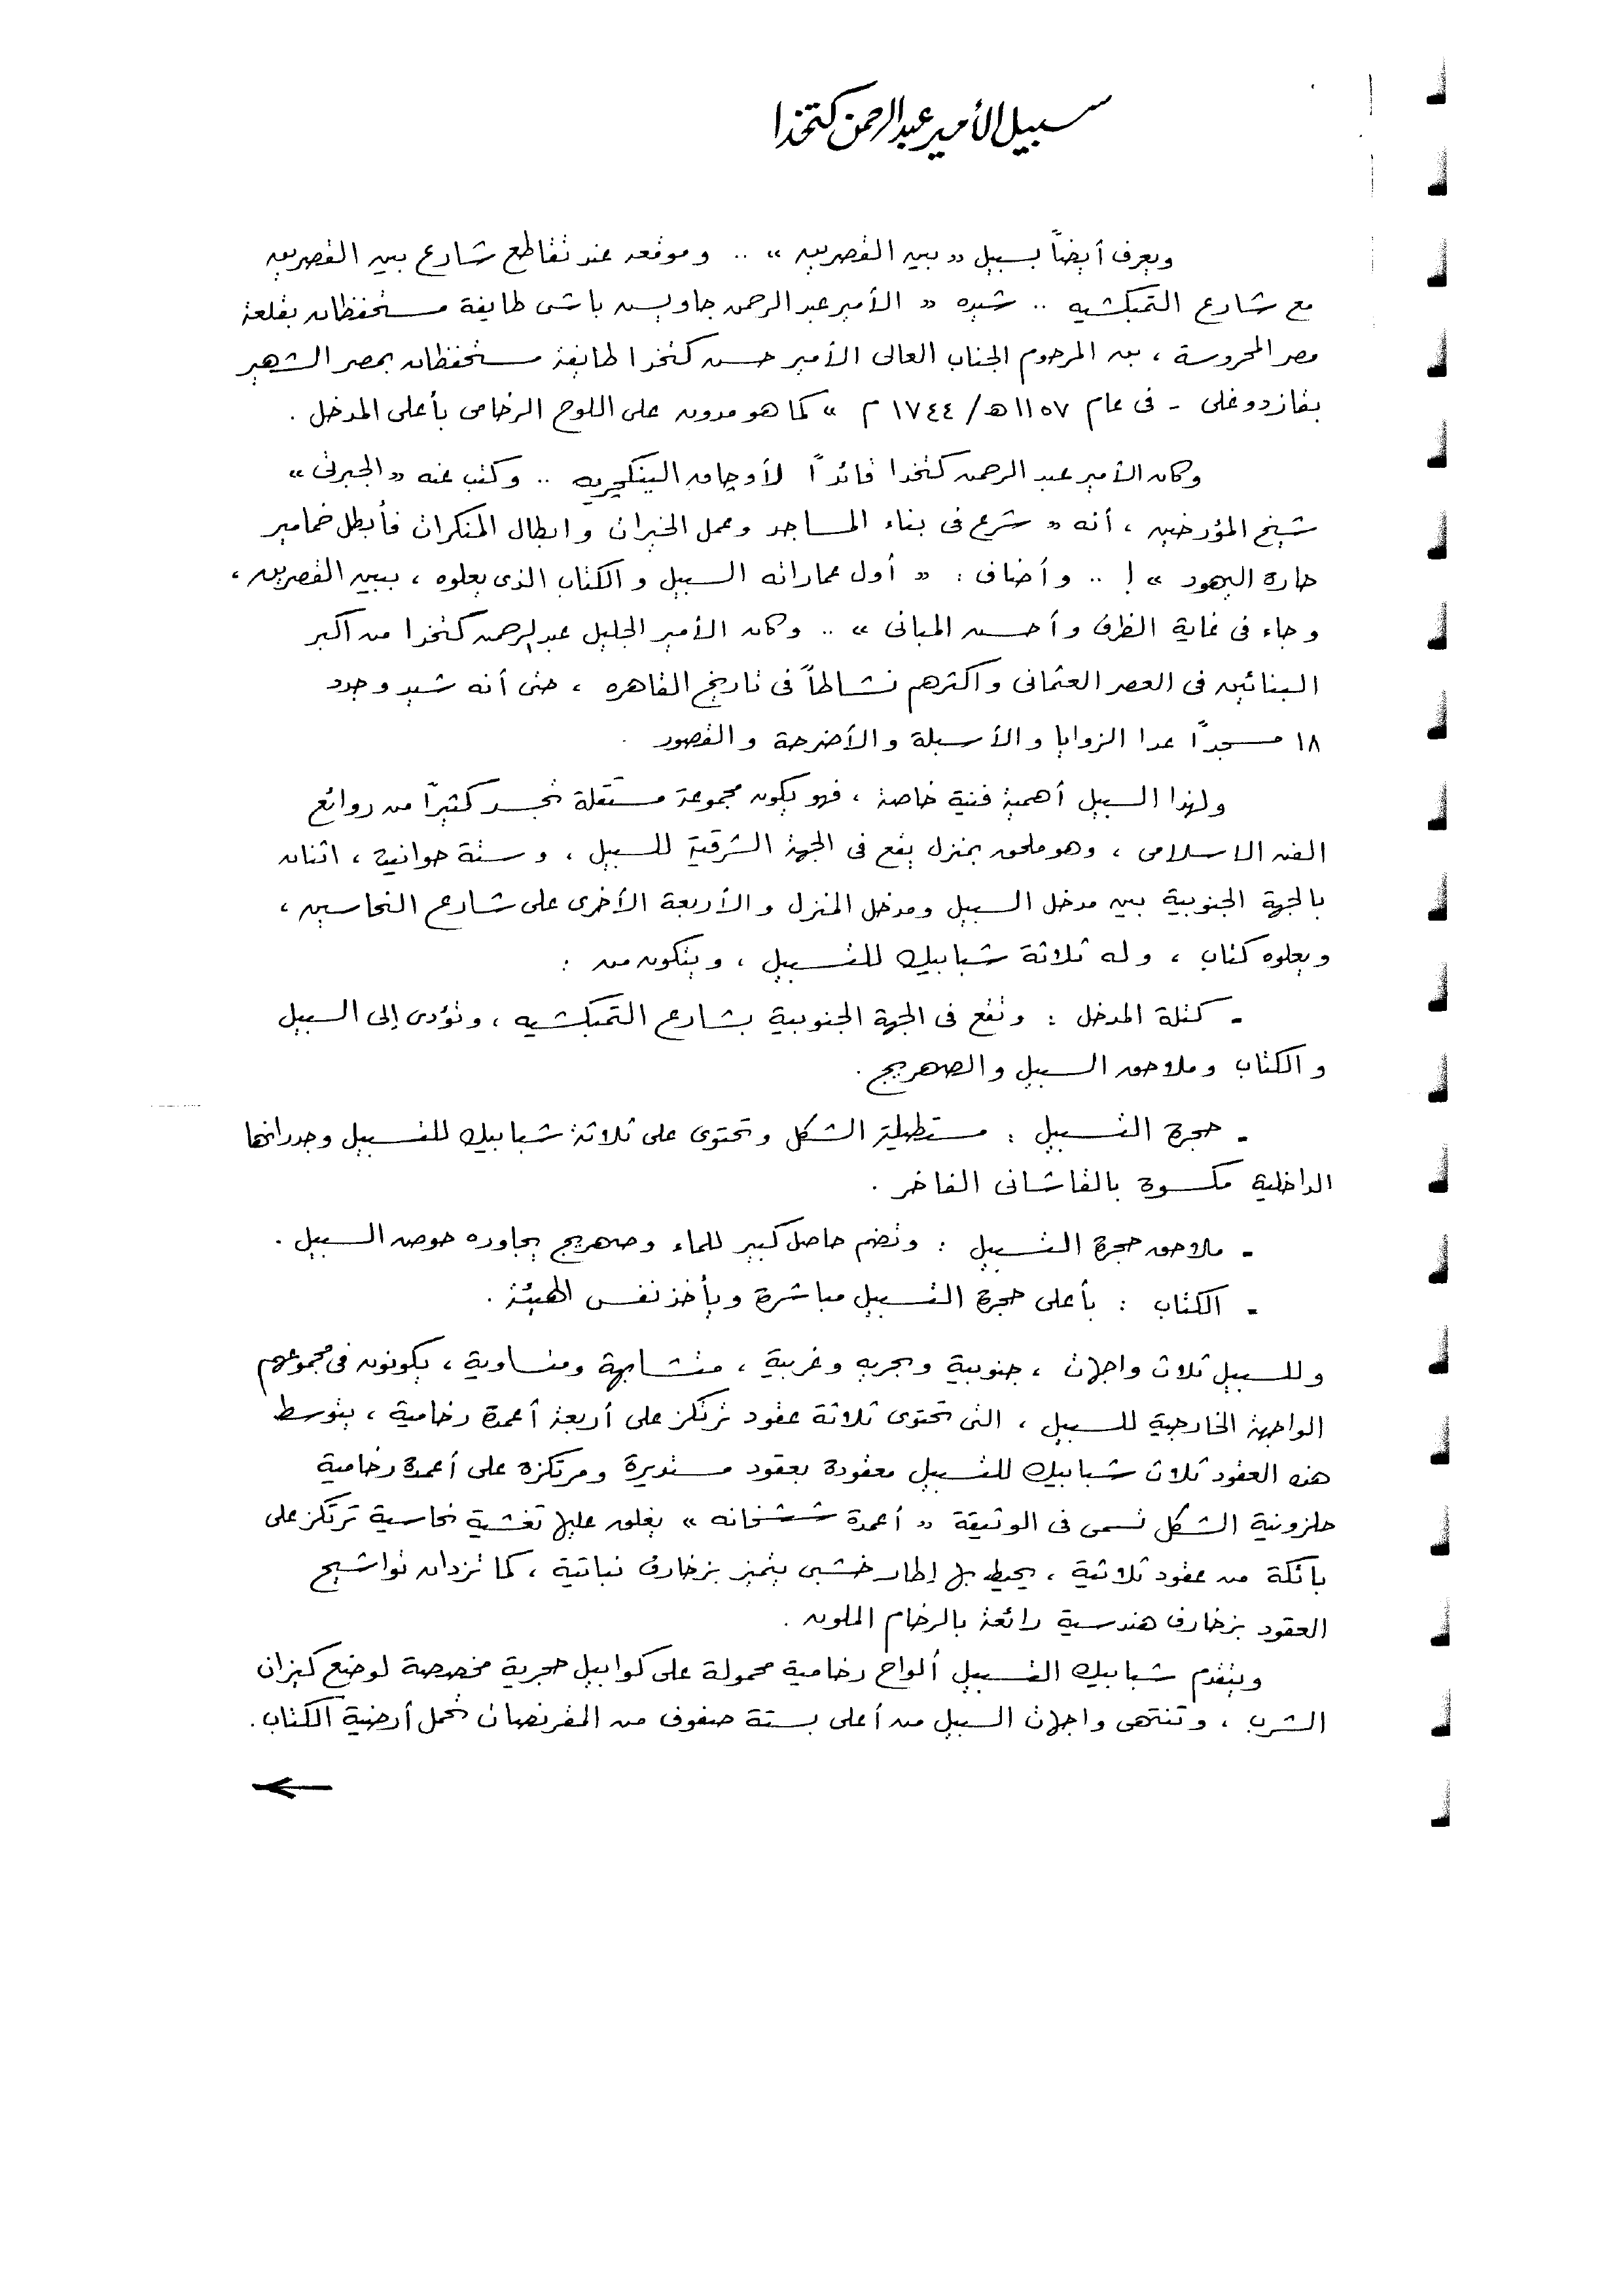 سبيل الأمير عبد الرحمن كتخدا
ويعرف أيضاً بسبيل « بين القصرين » .. وموقعه عند تقاطع شارع بين القصرين
مع شارع التمبكشيه .. شيده « الأمير عبد الرحمن جاويش باشى طايفة مستحفظان بقلعة
مصر المحروسة ، بن المرحوم الجناب العالى الأمير حسن كتخدا طايفة مستحفظان بمصر الشهير
بقازدوغلى - فى عام ١١٥٧ هـ / ١٧٤٤ م » كما هو مدون على اللوح الرخامى بأعلى المدخل .
وكان الأمير عبد الرحمن كتخدا قائداً لأوجاق الينكچريه .. وكتب عنه « الجبرتى »
شيخ المؤرخين ، أنه « شرع فى بناء المساجد وعمل الخيرات وابطال المنكرات فأبطل خمامير
حارة اليهود » ! .. وأضاف : « أول عماراته السبيل والكتاب الذى يعلوه ، ببين القصرين ،
وجاء فى غاية الظرف وأحسن المبانى » .. وكان الأمير الجليل عبد الرحمن كتخدا من اكبر
البنائين فى العصر العثمانى واكثرهم نشاطاً فى تاريخ القاهره ، حتى أنه شيد وجدد
١٨ مسجداً عدا الزوايا والأسبلة والأضرحة والقصور .
ولهذا السبيل أهمية فنية خاصة ، فهو يكون مجموعة مستقلة تجسد كثيراً من روائع
الفن الاسلامى ، وهو ملحق بمنزل يقع فى الجهة الشرقية للسبيل ، وستة حوانيت ، اثنان
بالجهة الجنوبية بين مدخل السبيل ومدخل المنزل والأربعة الأخرى على شارع النحاسين ،
ويعلوه كتاب ، وله ثلاثة شبابيك للتسبيل ، ويتكون من :
- كتلة المدخل : وتقع فى الجهة الجنوبية بشارع التمبكشيه ، وتؤدى إلى السبيل
والكتاب وملاحق السبيل والصهريج .
- حجرة التسبيل : مستطيلة الشكل وتحتوى على ثلاثة شبابيك للتسبيل وجدرانها
الداخلية مكسوة بالقاشانى الفاخر .
- ملاحق حجرة التسبيل : وتضم حاصل كبير للماء وصهريج يجاوره حوض السبيل .
- الكتاب : بأعلى حجرة التسبيل مباشرة ويأخذ نفس الهيئة .
وللسبيل ثلاث واجهات ، جنوبية وبحريه وغربية ، متشابهة ومتساوية ، يكونون فى مجموعهم
الواجهة الخارجية للسبيل ، التى تحتوى ثلاثة عقود ترتكز على أربعة أعمدة رخامية ، يتوسط
هذه العقود ثلاث شبابيك للتسبيل معقودة بعقود مستديرة ومرتكزه على أعمدة رخامية
حلزونية الشكل تسمى فى الوثيقة « أعمدة ششخانه » يغلق عليها تغشية نحاسية ترتكز على
بائكة من عقود ثلاثية ، يحيط بها إطار خشبى يتميز بزخارف نباتية ، كما تزدان تواشيح
العقود بزخارف هندسية رائعة بالرخام الملون .
ويتقدم شبابيك التسبيل ألواح رخامية محمولة على كوابيل حجرية مخصصة لوضع كيزان
الشرب ، وتنتهى واجهات السبيل من أعلى بستة صفوف من المقرنصات تحمل أرضية الكتاب .